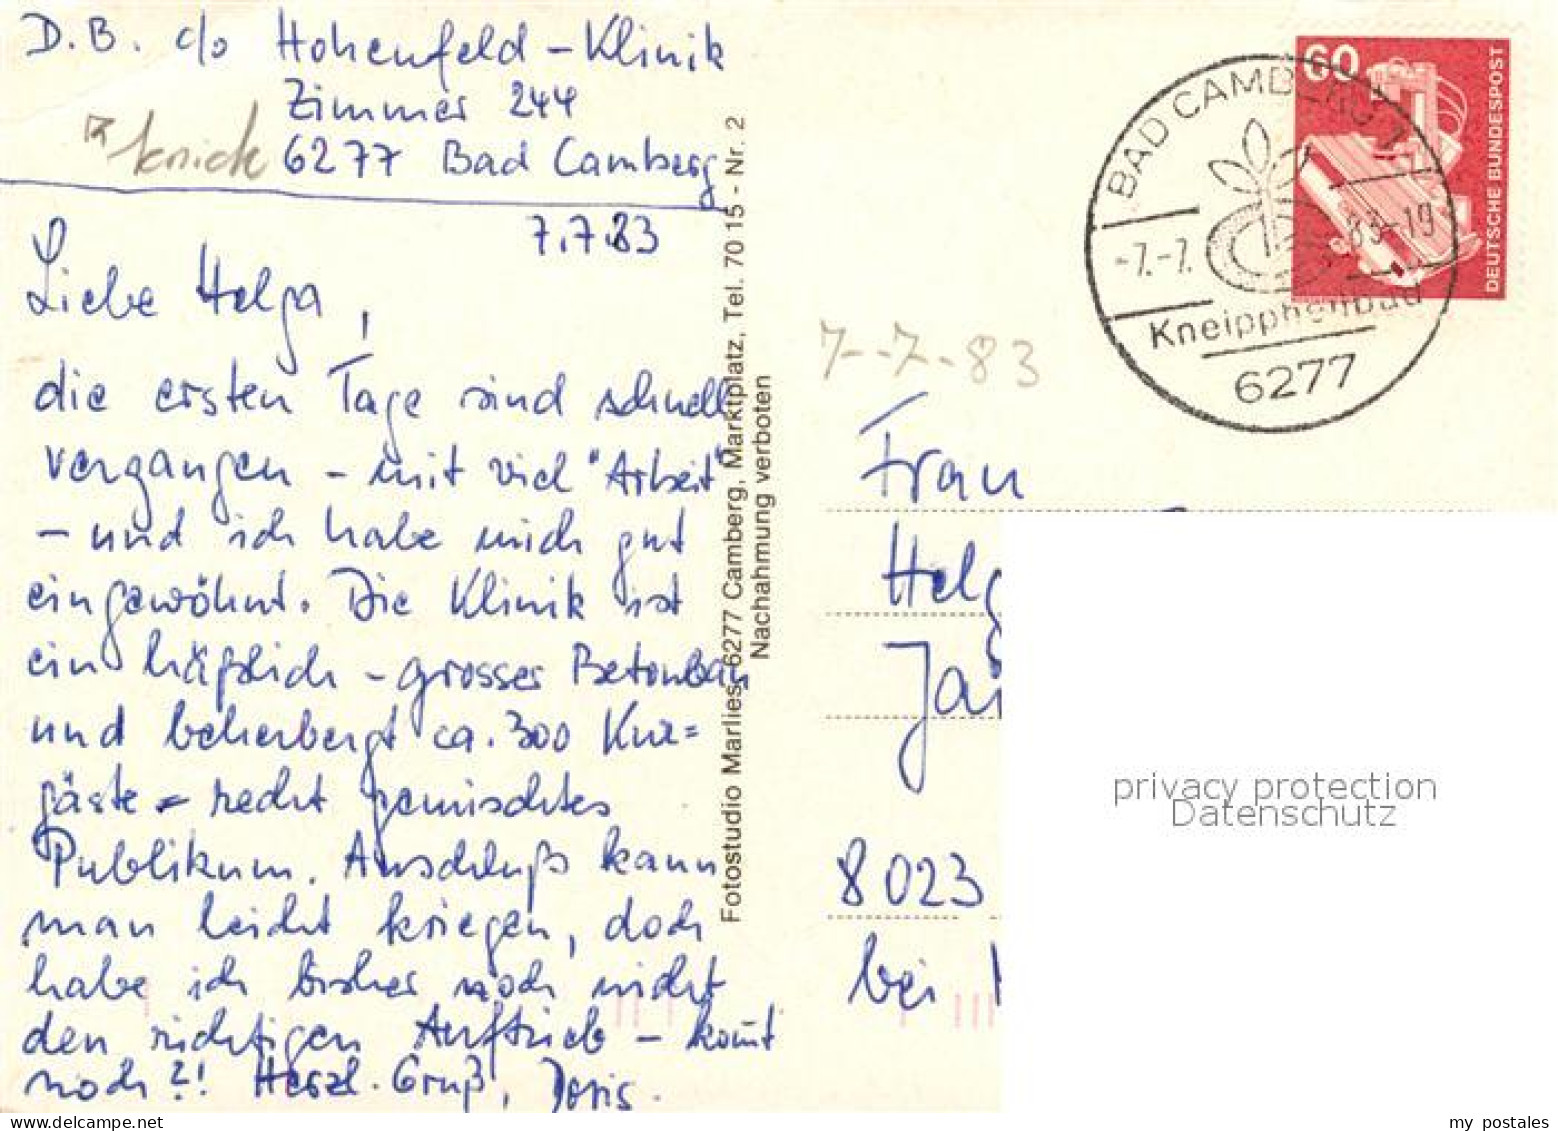 D.B. c/o Hohenfeld - Klinik
Zimmer 244
knick 6277 Bad Camberg
7.7.83
Liebe Helga,
die ersten Tage sind schnell
vergangen - mit viel "Arbeit"
- und ich habe mich gut
eingewöhnt. Die Klinik ist
ein häßlich - grosser Betonbau
und beherbergt ca. 300 Kur=
gäste - recht gemischtes
Publikum. Anschluß kann
man leicht kriegen, doch
habe ich bisher noch nicht
den richtigen Auftrieb - kommt
noch?! Herzl. Gruß, Doris.
Fotostudio Marlies, 6277 Camberg, Marktplatz, Tel. 70 15 - Nr. 2
Nachahmung verboten
60
DEUTSCHE BUNDESPOST
BAD CAMBERG 1
-7.-7. 83-19
Kneippheilbad
6277
7-7-83
Frau
Helg
8023
bei
privacy protection
Datenschutz
my postales